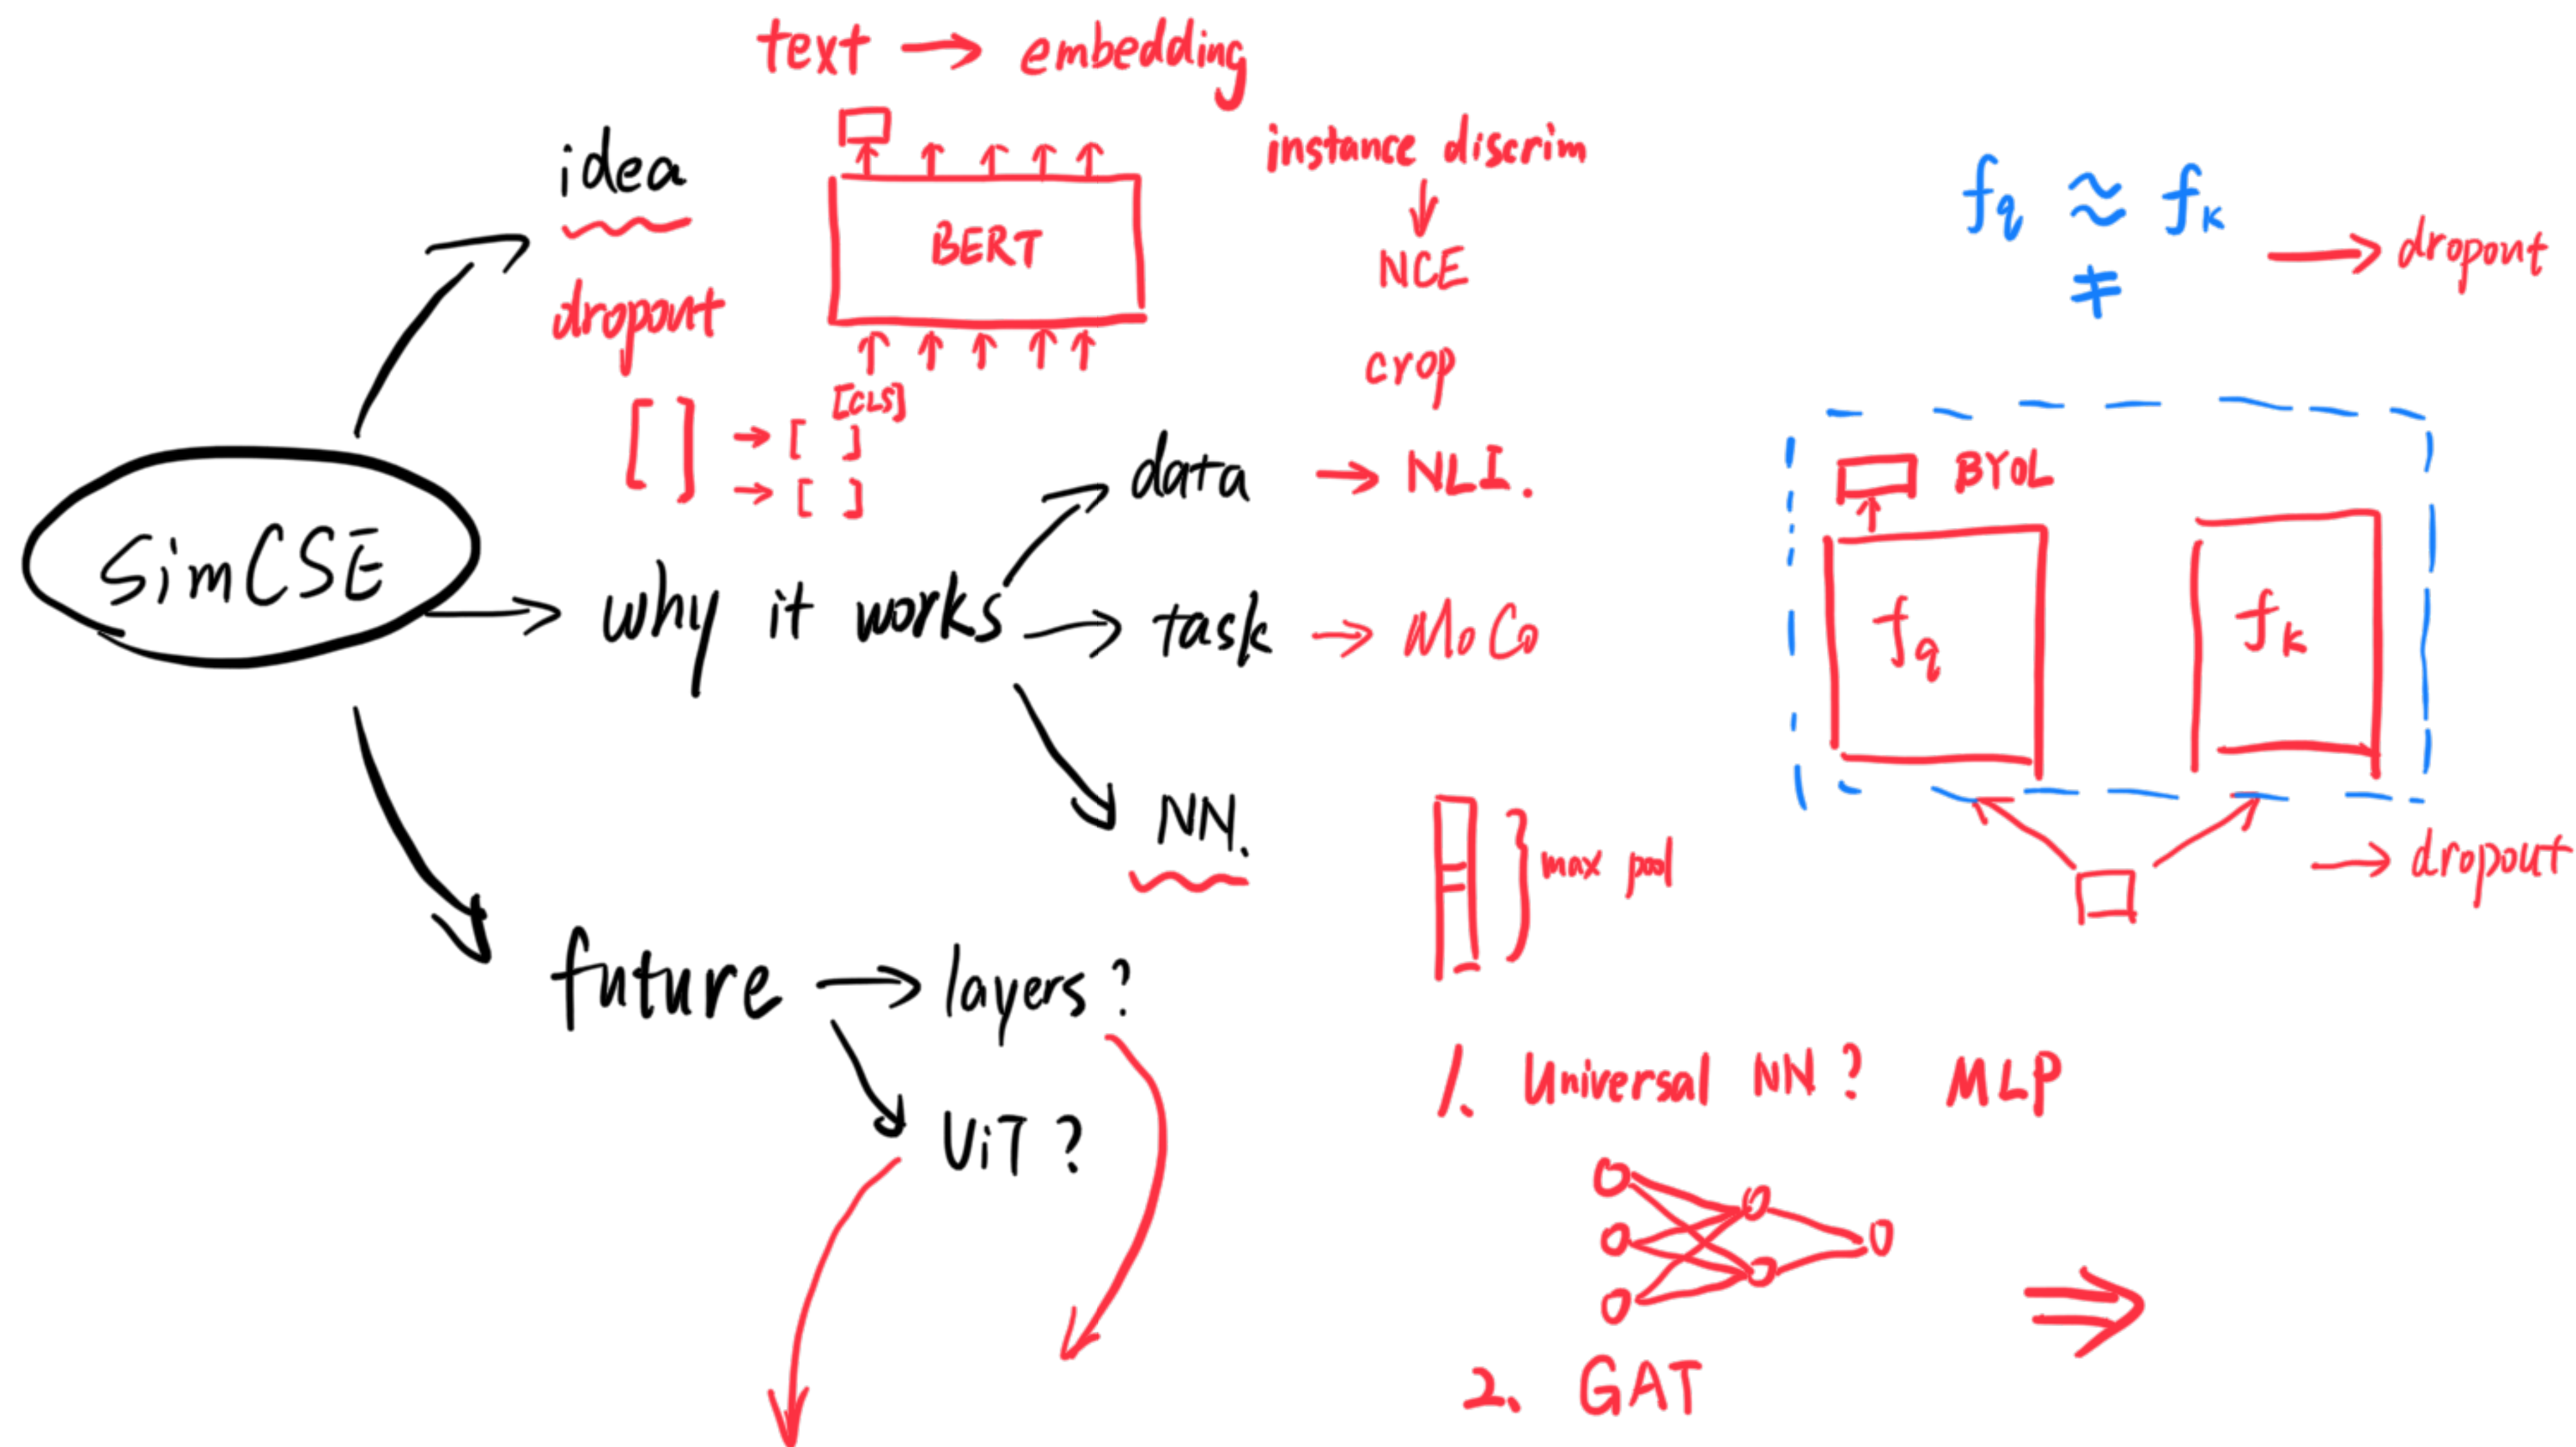 text → embedding
idea
dropout
BERT
[CLS]
[ ] → [ ]
→ [ ]
instance discrim
↓
NCE
crop
fq ≈ fk
≠
→ dropout
SimCSE
why it works
data → NLI.
task → MoCo
NN.
BYOL
fq
fk
→ dropout
max pool
future → layers?
ViT?
1. Universal NN? MLP
2. GAT
⇒